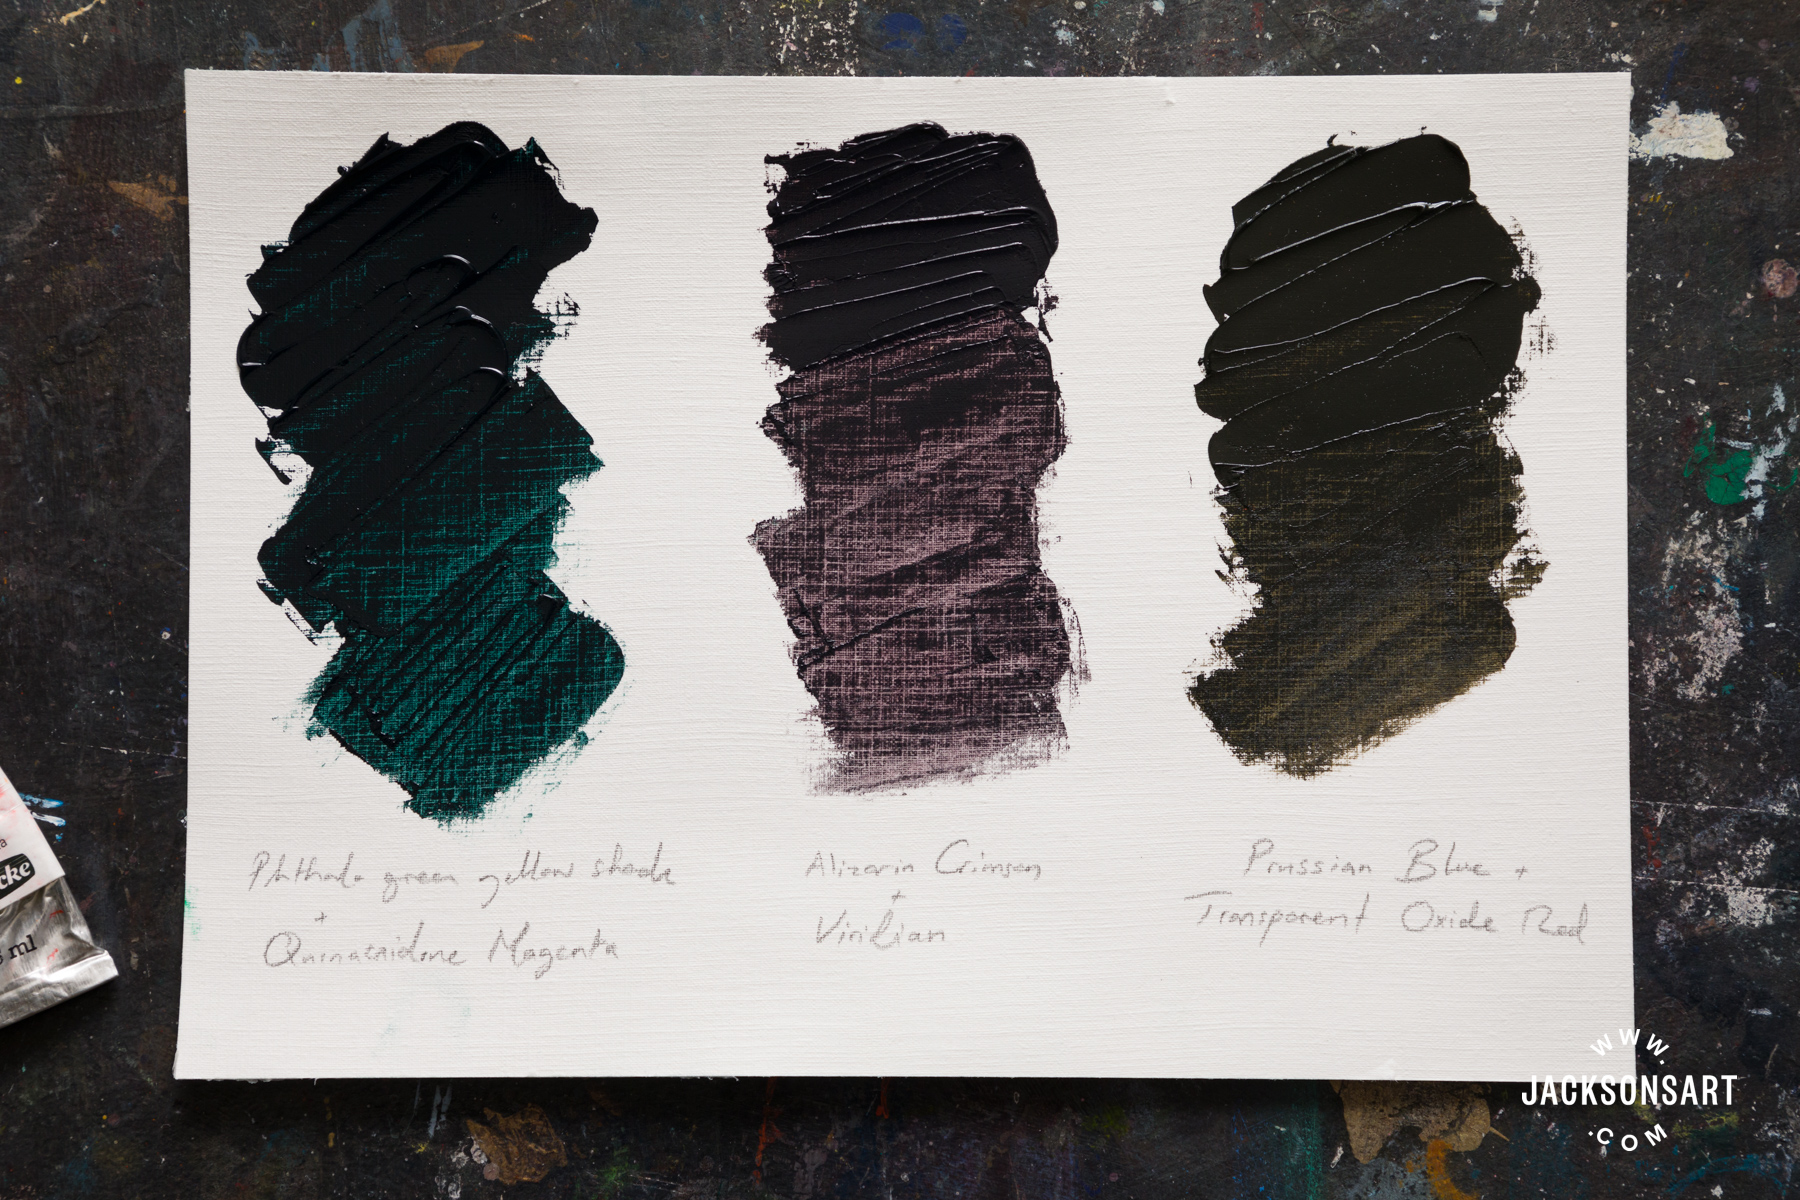 Phthalo green yellow shade
+
Quinacridone Magenta
Alizarin Crimson
+
Viridian
Prussian Blue +
Transparent Oxide Red
cke
ml
WWW.
JACKSONSART
.COM